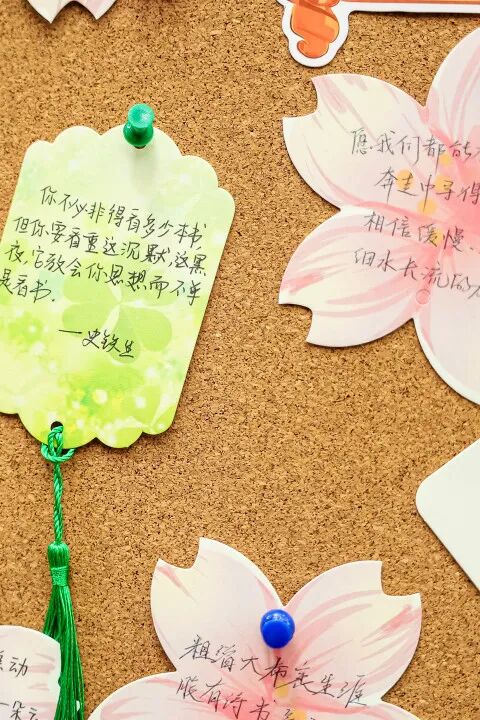 你不必非得看多少本书,
但你要看重这沉默,这黑
夜,它教会你思想而不单
是看书.
—史铁生
愿我们都能
奔走中寻得
相信缓慢、
细水长流的
粗缯大布裹生涯
腹有诗书
动
一朵